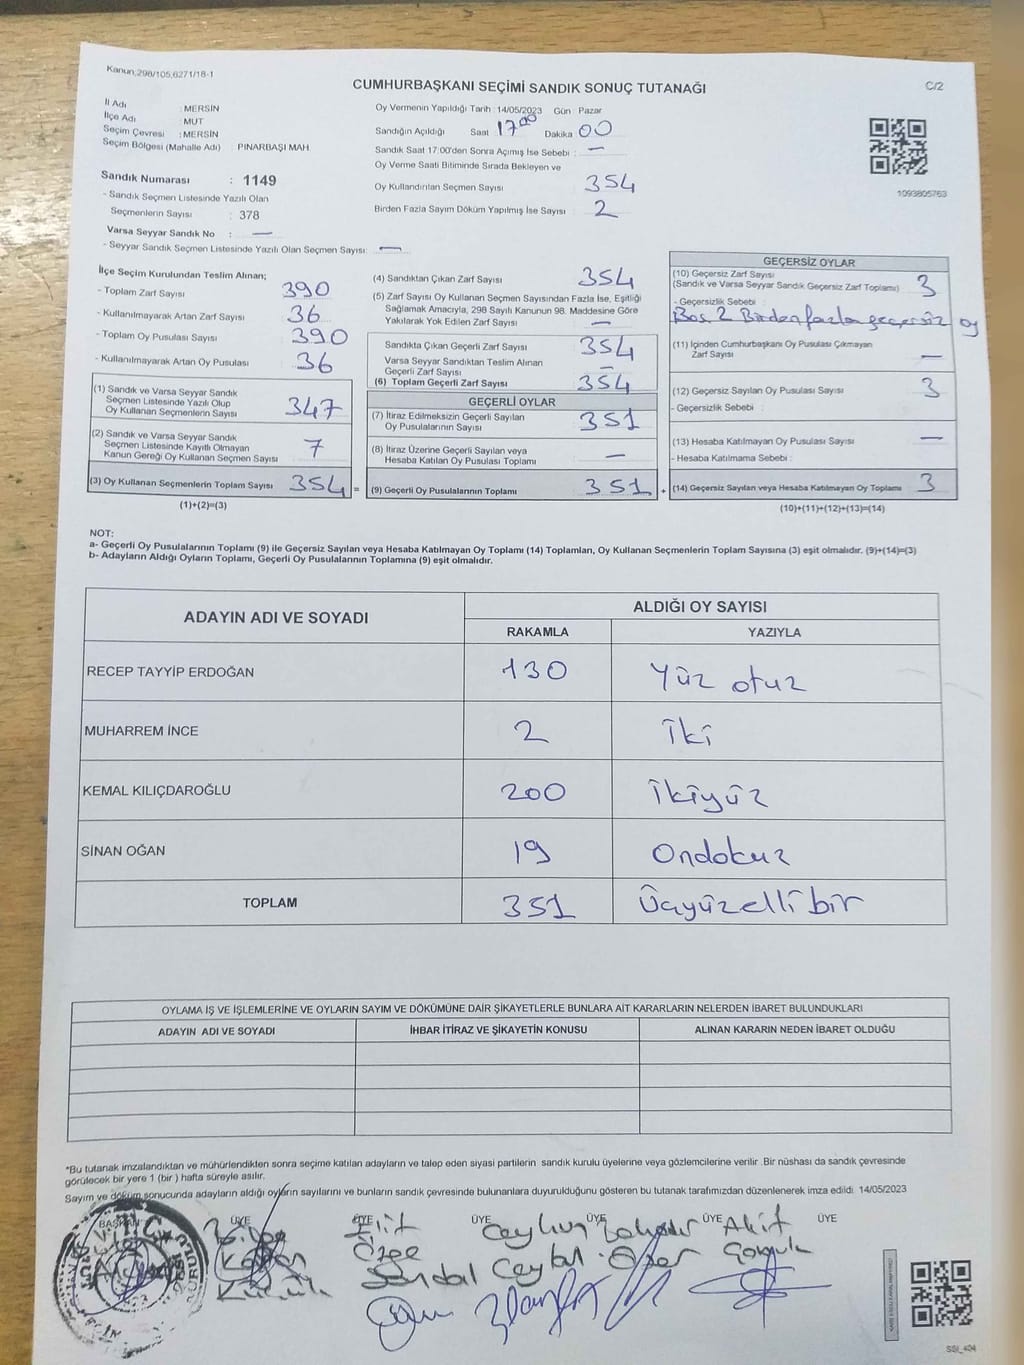 Kanun;298/105,6271/18-1
CUMHURBAŞKANI SEÇİMİ SANDIK SONUÇ TUTANAĞI
C/2
İl Adı : MERSİN
İlçe Adı : MUT
Seçim Çevresi : MERSİN
Seçim Bölgesi (Mahalle Adı) : PINARBAŞI MAH.
Sandık Numarası : 1149
- Sandık Seçmen Listesinde Yazılı Olan
Seçmenlerin Sayısı : 378
Varsa Seyyar Sandık No : —
- Seyyar Sandık Seçmen Listesinde Yazılı Olan Seçmen Sayısı: —
Oy Vermenin Yapıldığı Tarih : 14/05/2023 Gün : Pazar
Sandığın Açıldığı Saat 17 00 Dakika 00
Sandık Saat 17:00'den Sonra Açımış İse Sebebi : —
Oy Verme Saati Bitiminde Sırada Bekleyen ve
Oy Kullandırılan Seçmen Sayısı 354
Birden Fazla Sayım Döküm Yapılmış İse Sayısı 2
1093805763
İlçe Seçim Kurulundan Teslim Alınan;
- Toplam Zarf Sayısı 390
- Kullanılmayarak Artan Zarf Sayısı 36
- Toplam Oy Pusulası Sayısı 390
- Kullanılmayarak Artan Oy Pusulası 36
(1) Sandık ve Varsa Seyyar Sandık
Seçmen Listesinde Yazılı Olup
Oy Kullanan Seçmenlerin Sayısı 347
(2) Sandık ve Varsa Seyyar Sandık
Seçmen Listesinde Kayıtlı Olmayan
Kanun Gereği Oy Kullanan Seçmen Sayısı 7
(3) Oy Kullanan Seçmenlerin Toplam Sayısı 354 =
(1)+(2)=(3)
(4) Sandıktan Çıkan Zarf Sayısı 354
(5) Zarf Sayısı Oy Kullanan Seçmen Sayısından Fazla İse, Eşitliği
Sağlamak Amacıyla, 298 Sayılı Kanunun 98. Maddesine Göre
Yakılarak Yok Edilen Zarf Sayısı —
Sandıkta Çıkan Geçerli Zarf Sayısı 354
Varsa Seyyar Sandıktan Teslim Alınan
Geçerli Zarf Sayısı —
(6) Toplam Geçerli Zarf Sayısı 354
GEÇERLİ OYLAR
(7) İtiraz Edilmeksizin Geçerli Sayılan
Oy Pusulalarının Sayısı 351
(8) İtiraz Üzerine Geçerli Sayılan veya
Hesaba Katılan Oy Pusulası Toplamı —
(9) Geçerli Oy Pusulalarının Toplamı 351 +
GEÇERSİZ OYLAR
(10) Geçersiz Zarf Sayısı
(Sandık ve Varsa Seyyar Sandık Geçersiz Zarf Toplamı) 3
- Geçersizlik Sebebi :
Boş 2 Birden fazla geçersiz oy
(11) İçinden Cumhurbaşkanı Oy Pusulası Çıkmayan
Zarf Sayısı —
(12) Geçersiz Sayılan Oy Pusulası Sayısı 3
- Geçersizlik Sebebi :
(13) Hesaba Katılmayan Oy Pusulası Sayısı —
- Hesaba Katılmama Sebebi :
(14) Geçersiz Sayılan veya Hesaba Katılmayan Oy Toplamı 3
(10)+(11)+(12)+(13)=(14)
NOT:
a- Geçerli Oy Pusulalarının Toplamı (9) ile Geçersiz Sayılan veya Hesaba Katılmayan Oy Toplamı (14) Toplamları, Oy Kullanan Seçmenlerin Toplam Sayısına (3) eşit olmalıdır. (9)+(14)=(3)
b- Adayların Aldığı Oyların Toplamı, Geçerli Oy Pusulalarının Toplamına (9) eşit olmalıdır.
ADAYIN ADI VE SOYADI ALDIĞI OY SAYISI
RAKAMLA YAZIYLA
RECEP TAYYİP ERDOĞAN 130 Yüz otuz
MUHARREM İNCE 2 İki
KEMAL KILIÇDAROĞLU 200 İkiyüz
SİNAN OĞAN 19 Ondokuz
TOPLAM 351 Üçyüzellibir
OYLAMA İŞ VE İŞLEMLERİNE VE OYLARIN SAYIM VE DÖKÜMÜNE DAİR ŞİKAYETLERLE BUNLARA AİT KARARLARIN NELERDEN İBARET BULUNDUKLARI
ADAYIN ADI VE SOYADI İHBAR İTİRAZ VE ŞİKAYETİN KONUSU ALINAN KARARIN NEDEN İBARET OLDUĞU
*Bu tutanak imzalandıktan ve mühürlendikten sonra seçime katılan adayların ve talep eden siyasi partilerin sandık kurulu üyelerine veya gözlemcilerine verilir .Bir nüshası da sandık çevresinde
görülecek bir yere 1 (bir ) hafta süreyle asılır.
Sayım ve döküm sonucunda adayların aldığı oyların sayılarını ve bunların sandık çevresinde bulunanlara duyurulduğunu gösteren bu tutanak tarafımızdan düzenlenerek imza edildi. 14/05/2023
BAŞKAN ÜYE ÜYE ÜYE ÜYE ÜYE ÜYE
Elif Ceyhun Bahadır Akif
Özge Ceylan Özer
Sandal